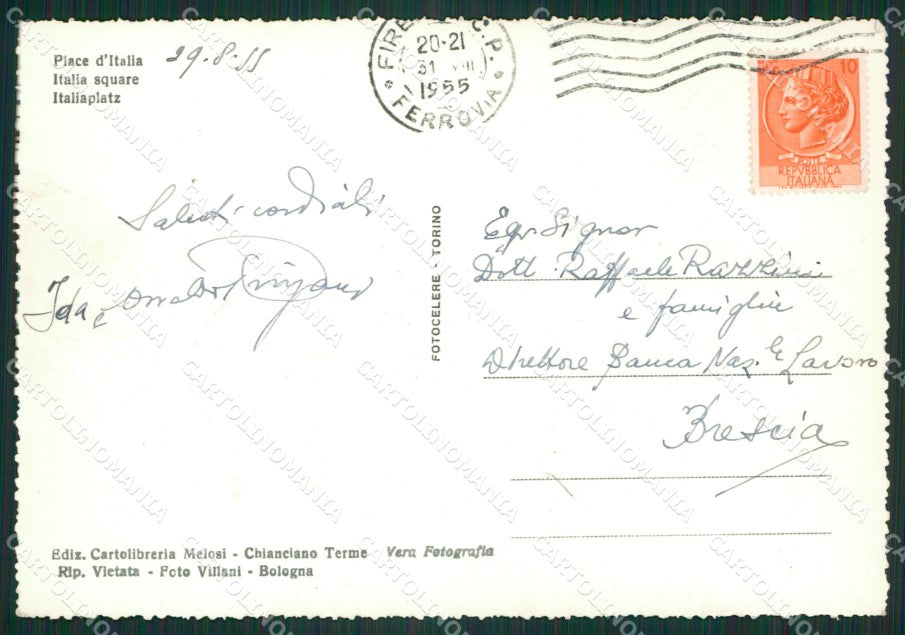 Place d'Italia
Italia square
Italiaplatz
29-8-55
FIRE C.P.
20-21
31 VIII
1955
* FERROVIA *
10
POSTE
REPVBBLICA
ITALIANA
Saluti cordiali
Ida e
FOTOCELERE - TORINO
Egr. Signor
Dott. Raffaele Razzini
e famiglia
Direttore Banca Naz.le Lavoro
Brescia
Ediz. Cartolibreria Melosi - Chianciano Terme Vera Fotografia
Rip. Vietata - Foto Villani - Bologna
CARTOLINOMANIA